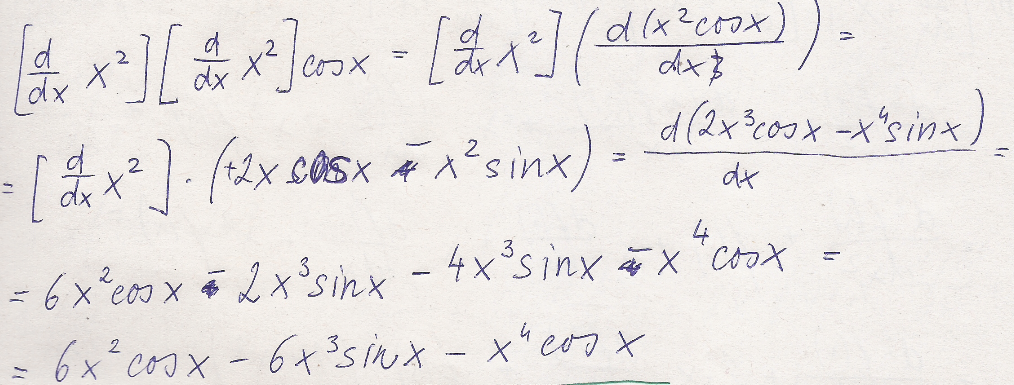 [d/dx x²][d/dx x²]cosx = [d/dx x²](d(x²cosx)/dx) =
= [d/dx x²]·(+2x cosx - x²sinx) = d(2x³cosx - x⁴sinx)/dx =
= 6x²cosx - 2x³sinx - 4x³sinx - x⁴cosx =
= 6x²cosx - 6x³sinx - x⁴cosx